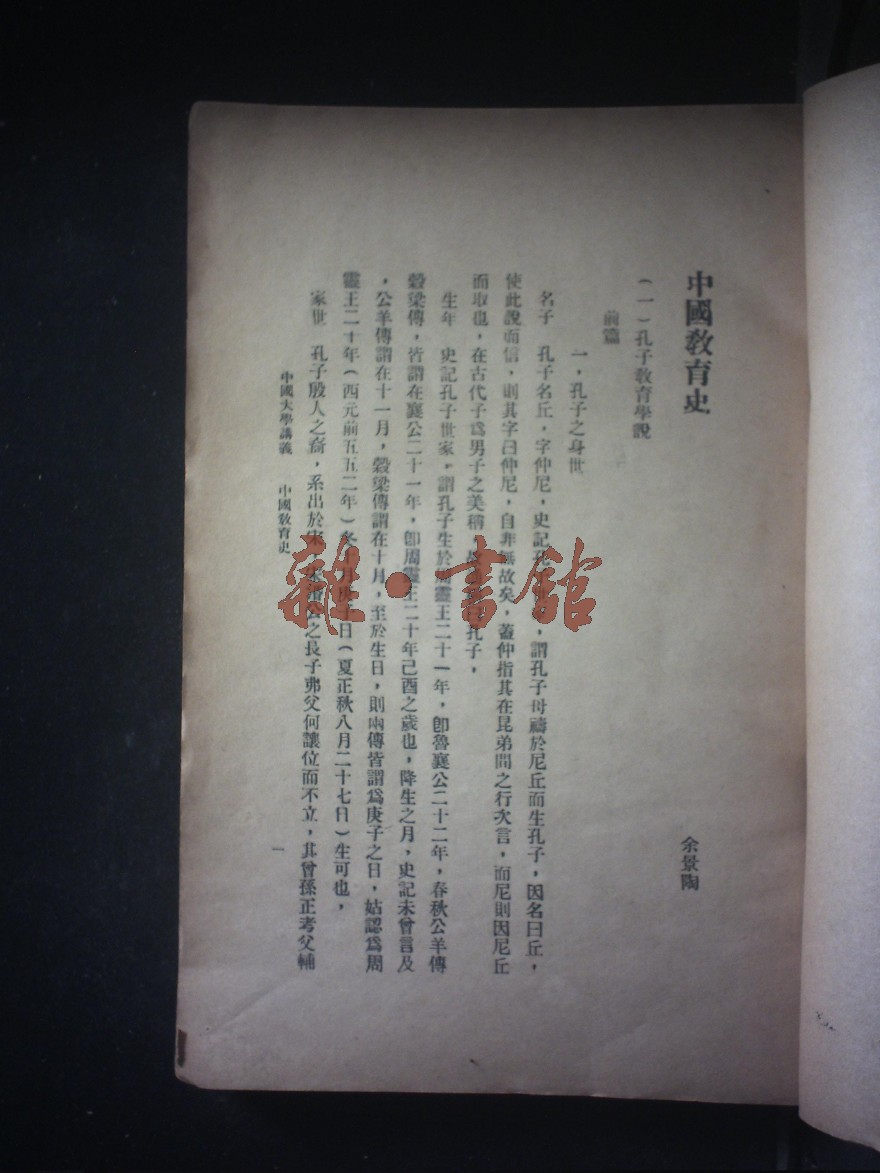 中國敎育史
余景陶
（一）孔子敎育學說
前篇
一，孔子之身世
名子　孔子名丘，字仲尼，史記孔子，謂孔子母禱於尼丘而生孔子，因名曰丘，
使此說而信，則其字曰仲尼，自非無故矣，蓋仲指其在昆弟間之行次言，而尼則因尼丘
而取也，在古代子爲男子之美稱，孔子，
生年　史記孔子世家，謂孔子生於周靈王二十一年，卽魯襄公二十二年，春秋公羊傳
穀梁傳，皆謂在襄公二十一年，卽周靈王二十年己酉之歲也，降生之月，史記未曾言及
，公羊傳謂在十一月，穀梁傳謂在十月，至於生日，則兩傳皆謂爲庚子之日，姑認爲周
靈王二十年（西元前五五二年）冬月庚子日（夏正秋八月二十七日）生可也，
家世　孔子殷人之裔，系出於宋，公之長子弗父何讓位而不立，其曾孫正考父輔
中國大學講義　中國敎育史
一
雜·書館